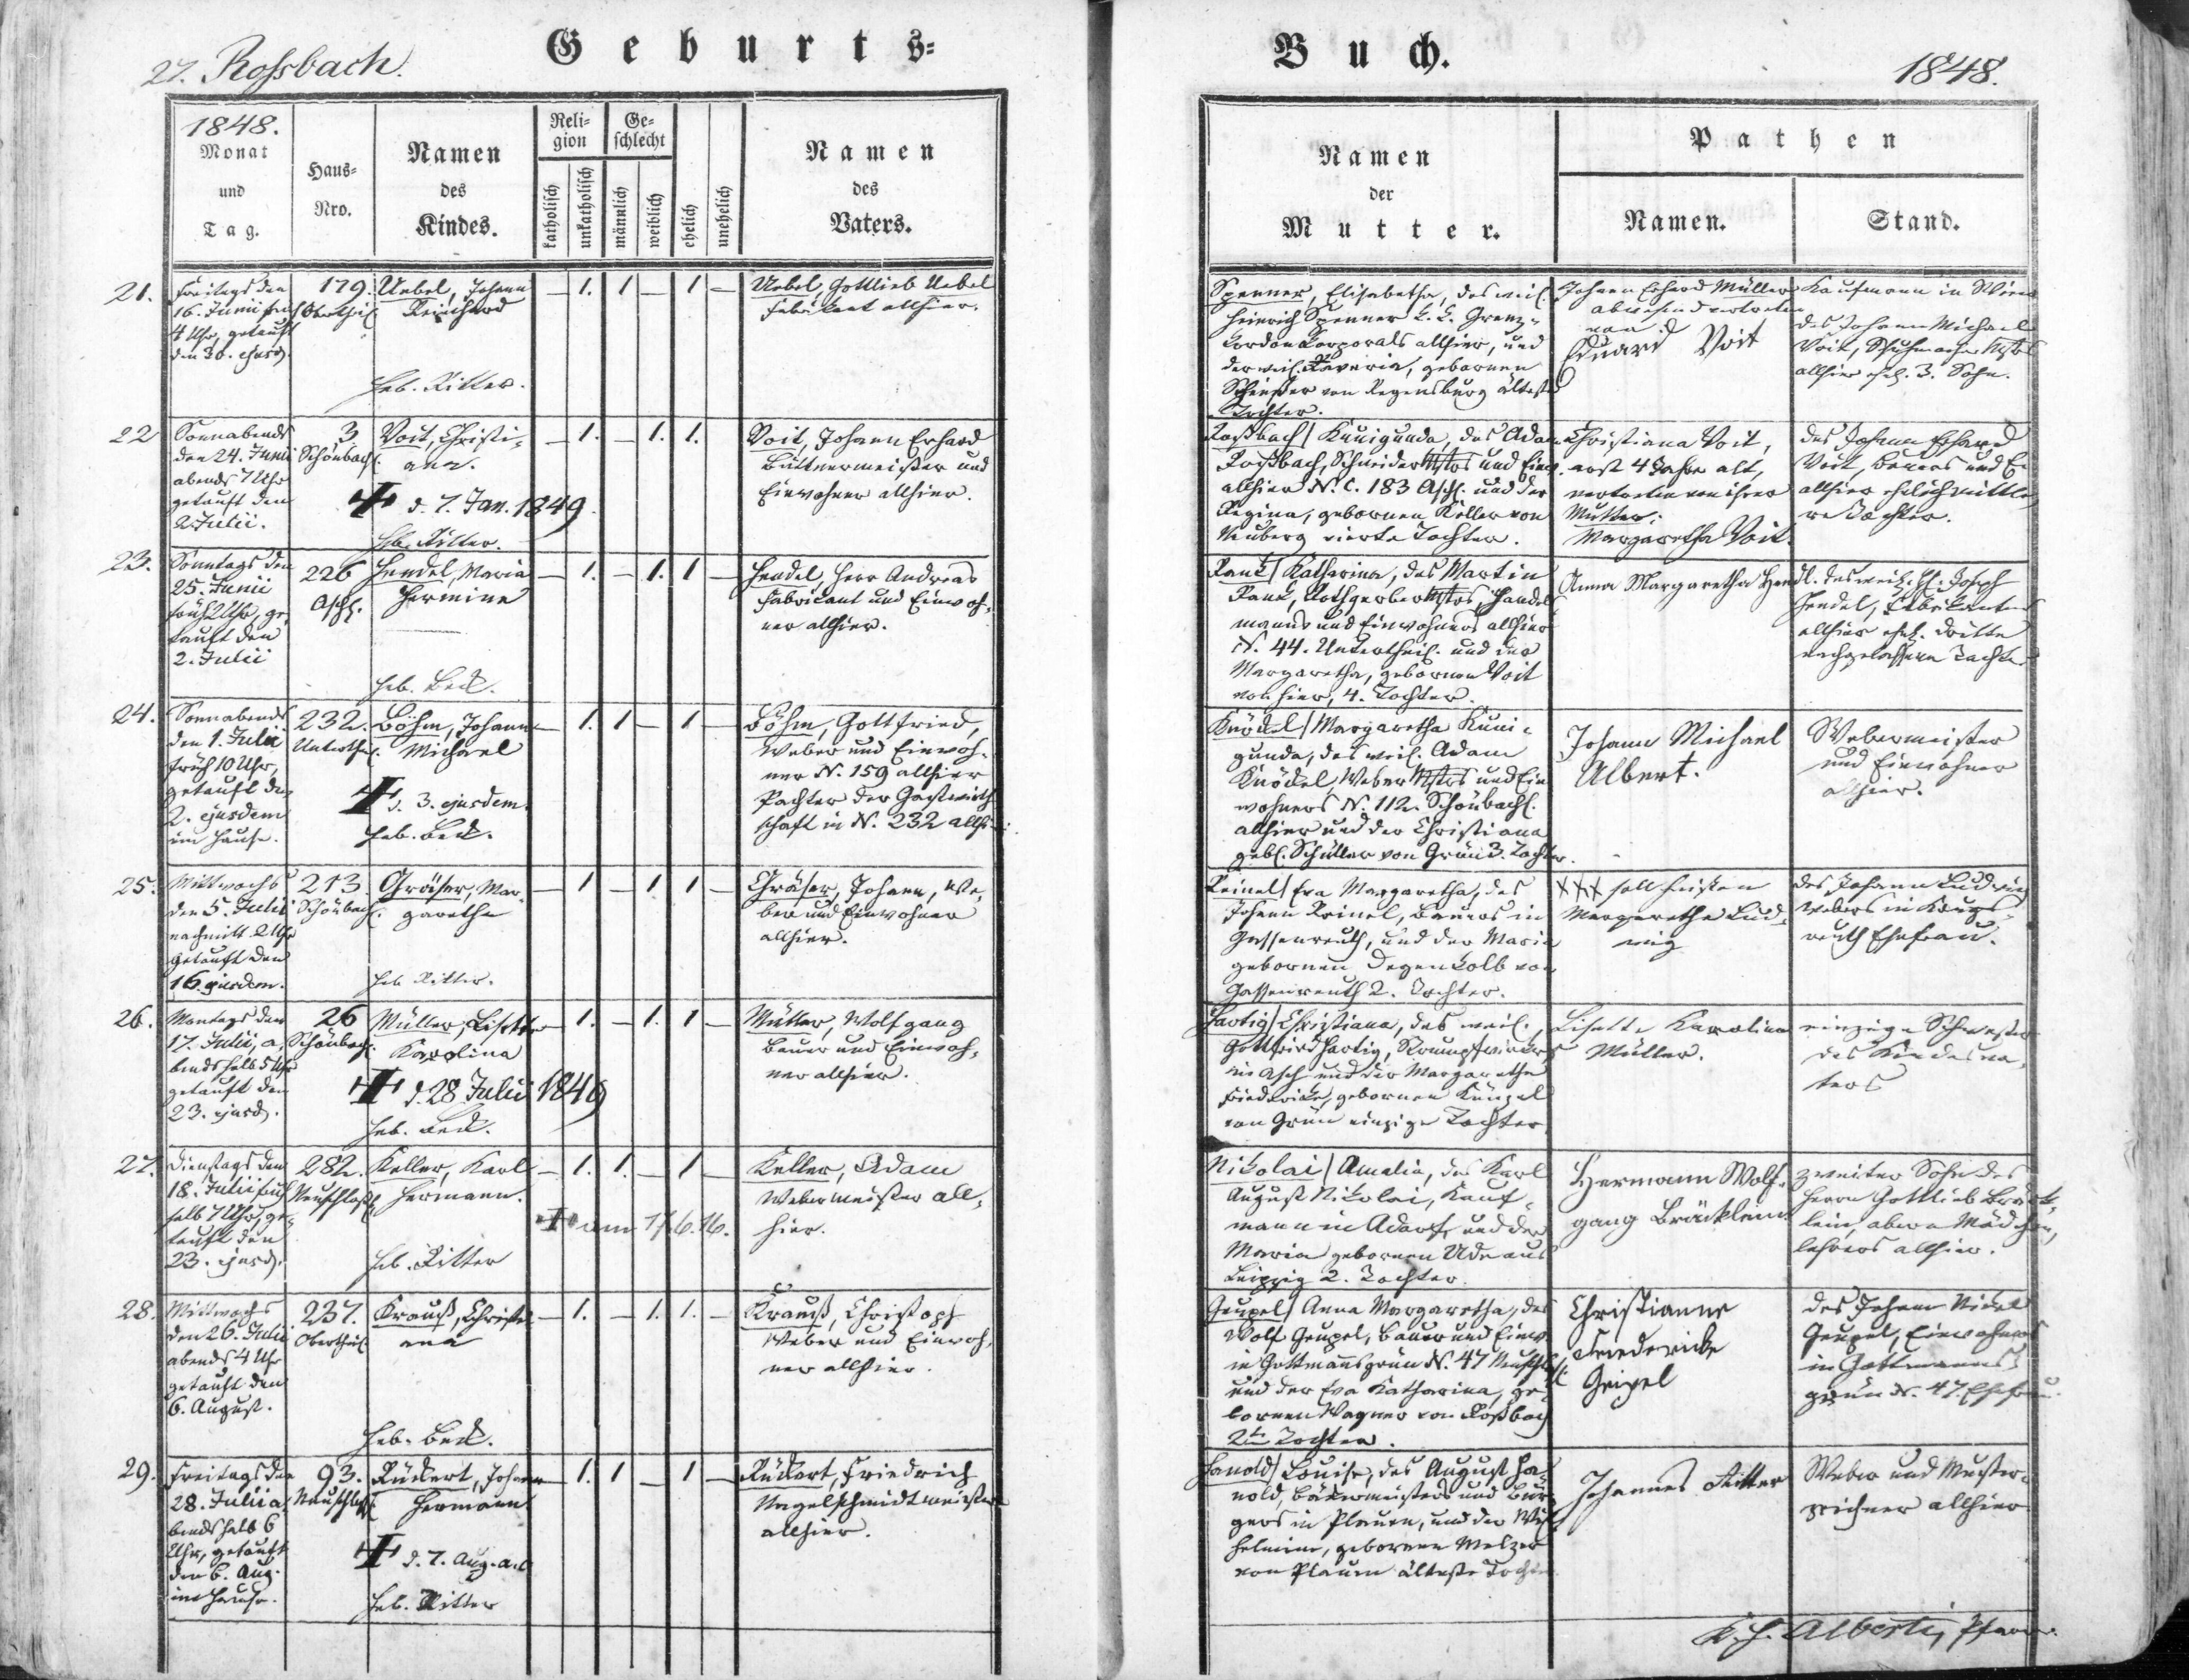 27. Roßbach.
Geburts=
Buch.
1848.
1848.
Monat
und
Tag.
Haus=
Nro.
Namen
des
Kindes.
Reli=
gion
katholisch
unkatholisch
Ge=
schlecht
männlich
weiblich
ehelich
unehelich
Namen
des
Vaters.
Namen
der
Mutter.
Pathen
Namen.
Stand.
21.
Freitags den
16. Junii früh
4 Uhr, getauft
den 30. ejusd.
179.
Obertheil
Uebel, Johann
Reinhard
Heb. Ritter.
— 1. 1 — 1 —
Uebel, Gottlieb Uebel
Fabrikant allhier.
Spenner, Elisabetha, des weil.
Heinrich Spenner k. k. Grenz=
Cordon Korporals allhier, und
der weil. Xaveria, gebornen
von Regensburg älteste
Tochter.
Johann Erhard Müller
abwesend vertreten
von
Eduard Voit
Kaufmann in Wien
des Johann Michael
Voit, Schuhmacher Mstrs
allhier ehel. 3. Sohn.
22
Sonnabends
den 24. Junii
abends 7 Uhr
getauft den
2. Julii.
3
Schönbach.
Voit, Christi=
ana.
d. 7. Jan. 1849
Heb. Ritter.
— 1. — 1. 1.
Voit, Johann Erhard
Büttnermeister und
Einwohner allhier.
Roßbach/ Kunigunda, des Adam
Roßbach, Schneider Mstrs und Einw.
allhier N. C. 183 Asch. und der
Regina, gebornen Köller von
Neuberg vierte Tochter.
Christiana Voit,
erst 4 Jahre alt,
vertreten von ihrer
Mutter:
Margaretha Voit.
des Johann Erhard
Voit, Bauers und
allhier ehelich mittle=
re Tochter.
23.
Sonntags den
25. Junii
früh 2 Uhr, ge=
tauft den
2. Julii
226
Asch.
Hendel, Maria
Hermine
Heb. Beck.
— 1. — 1. 1 —
Hendel, Herr Andreas
Fabricant und Einwoh=
ner allhier.
Rank/ Katharina, des Martin
Rank, Rothgerber Mstrs, Handels
manns und Einwohners allhier
N. 44. Untertheil. und der
Margaretha, gebornen Voit
von hier, 4. Tochter.
Anna Margaretha Hendl.
des weil. H. Joseph
Hendel, Fabrikanten
allhier ehel. dritte
nachgelassene Tochter
24.
Sonnabends
den 1. Julii
früh 10 Uhr,
getauft den
2. ejusdem
im Hause.
232.
Unterthl.
Böhm, Johann
Michael
d. 3. ejusdem.
Heb. Beck.
— 1. 1 — 1 —
Böhm, Gottfried,
Weber und Einwoh=
ner N. 159 allhier
Pachter der Gastwirth
schaft in N. 232 allhier
Knöckel/ Margaretha Kuni=
gunda, des weil. Adam
Knöckel, Weber Mstrs und Ein
wohners N. 112. Schönbach.
allhier und der Christiana
gebl. Schüller von Grün 3. Tochter.
Johann Michael
Albert.
Webermeister
und Einwohner
allhier.
25.
Mittwochs
den 5. Julii
nachmitt. 2 Uhr
getauft den
16. ejusdem.
213.
Schönbach.
Gräser, Mar=
garetha
Heb. Ritter.
— 1 — 1. 1 —
Gräser, Johann, We=
ber und Einwohner
allhier.
Reinel/ Eva Margaretha, des
Johann Reinel, Bauers in
Gassenreuth, und der Maria
gebornen Degenkolb von
Gassenreuth 2. Tochter.
XXX soll heißen
Margaretha Lud=
wig
des Johann Ludwig
Webers in
reuth Ehefrau.
26.
Montags den
17. Julii, a=
bends halb 5 Uhr
getauft den
23. ejusd.
26
Schönbach.
Müller, Lisette
Karolina
d. 28 Julii 1849
Heb. Beck.
— 1. — 1. 1 —
Müller, Wolfgang
Bauer und Einwoh=
ner allhier.
Hartig/ Christiana, des weil.
Gottfried Hartig, Strumpfwirkers
in Asch und der Margaretha
Friedericke, gebornen Künzel
von Grün einzige Tochter.
Lisette Karolina
Müller.
einzige Schwester
des Kindesva=
ters
27.
Dienstags den
18. Julii früh
halb 7 Uhr, ge=
tauft den
23. ejusd.
282.
Neuschloß
Keller, Karl
Hermann.
am 17.6.16.
Heb. Ritter
— 1. 1. — 1 —
Keller, Adam
Webermeister all=
hier.
Nikolai/ Amalia, des Karl
August Nikolai, Kauf=
mann in Adorf, und der
Maria gebornen Ude aus
Leipzig 2. Tochter.
Hermann Wolf=
gang Bräcklein
zweiter Sohn des
Herrn Gottlieb Bräck=
lein, Mädchen=
lehrers allhier.
28.
Mittwochs
den 26. Julii
abends 4 Uhr
getauft den
6. August.
237.
Obertheil.
Krauß, Christi=
ana
Heb. Beck.
— 1. — 1. 1. —
Krauß, Christoph
Weber und Einwoh=
ner allhier.
Geupel/ Anna Margaretha, des
Wolf Geupel, Bauer und Einw.
in Gottmannsgrün N. 47 Neuschl.
und der Eva Katharina, ge=
bornen Wagner von Roßbach
2te Tochter.
Christianne
Friedericke
Geipel
des Johann Nicol
Geupel, Einwohners
in Gottmanns=
grün N. 47. Ehefrau.
29.
Freitags den
28. Julii a=
bends halb 6
Uhr, getauft
den 6. Aug.
im Hause.
93.
Neuschloß
Rückert, Johann
Hermann
d. 7. Aug. a.c.
Heb. Ritter
— 1. 1 — 1 —
Rückert, Friedrich
Nagelschmidtmeister
allhier.
Hanold/ Louise, des August Ha=
nold, Bäckermeisters und Bür=
gers in Plauen, und der Wil=
helmine, gebornen Melzer
von Plauen älteste Tochter
Johannes Ritter
Weber und Muster=
zeichner allhier
Alberti, Pfarrer.